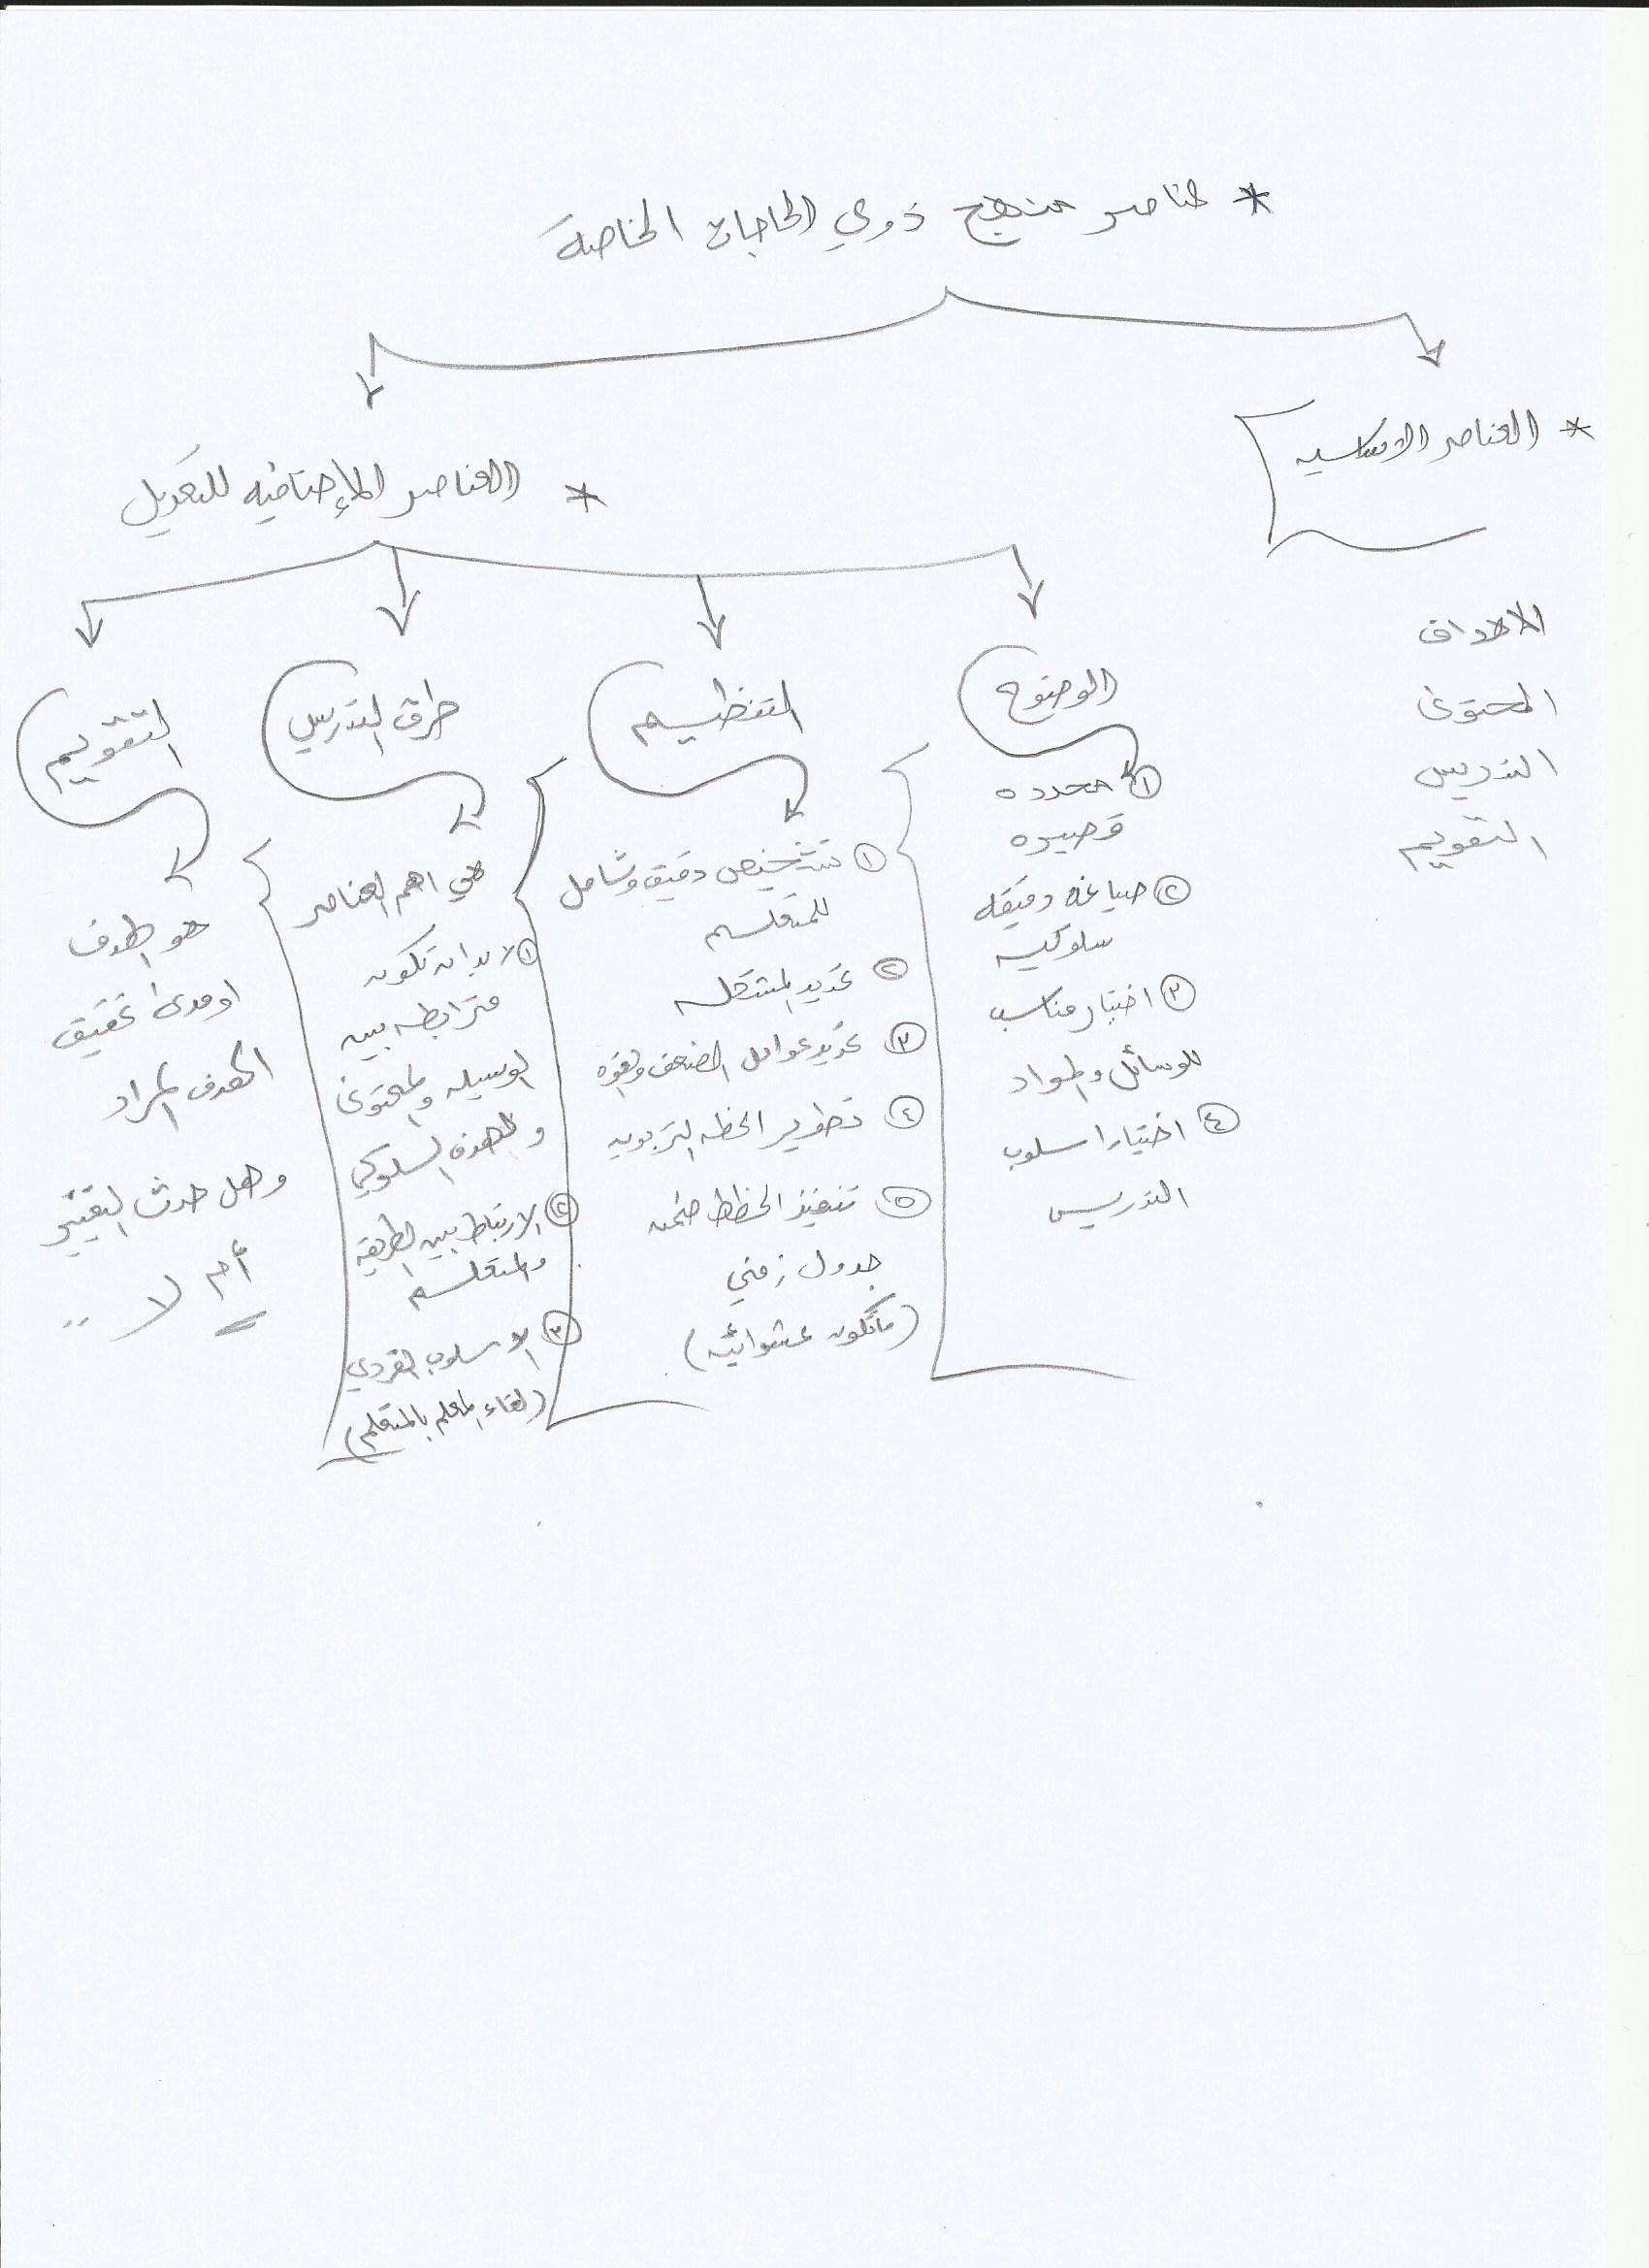 * عناصر منهج ذوي الحاجات الخاصة
* العناصر الاساسيه
الاهداف
المحتوى
التدريس
التقويم
* العناصر الإضافيه للتعديل
الوضوح
① محدده
قصيره
② صياغه دقيقه
سلوكيه
③ اختيار مناسب
للوسائل والمواد
④ اختيار اسلوب
التدريس
التنظيم
① تشخيص دقيق وشامل
للمتعلم
② تحديد المشكله
③ تحديد عوامل الضعف والقوه
④ تطوير الخطه التربويه
⑤ تنفيذ الخطط ضمن
جدول زمني
(ماتكون عشوائيه)
طرق التدريس
هي اهم العناصر
① لابد ان تكون
مترابطه بين
الوسيله والمحتوى
والهدف السلوكي
② الارتباط بين الطريقه
والمتعلم
③ الاسلوب الفردي
(لقاء المعلم بالمتعلم)
التقويم
هو الهدف
او مدى تحقيق
الهدف المراد
وهل حدث التغيير
أم لا ..